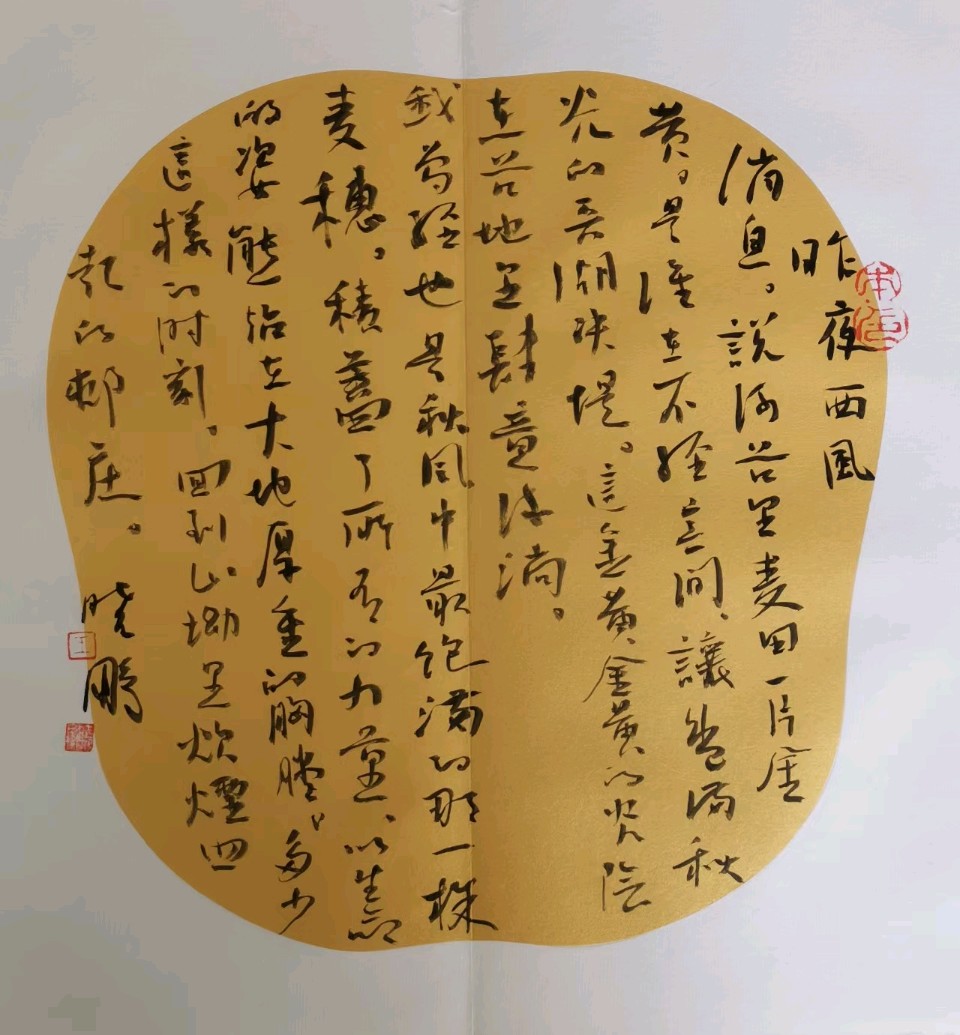 昨夜西風
消息。說河谷里麦田一片金
黄。是谁在不經意間、讓盈满秋
光的湖决堤。這金黄金黄的光陰
在谷地里肆意流淌。
我曾經也是秋風中最飽满的那一株
麦穗。積蓄了所有的力量、以生命
的姿態站在大地厚重的胸膛。多少
這樣的时刻。回到山坳里炊煙四
起的邨庄。
晓鹏
王